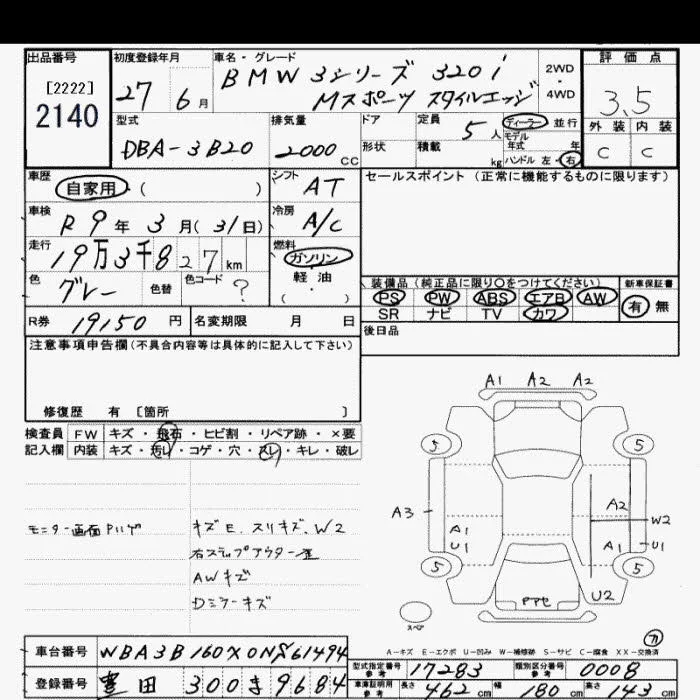 出品番号
[2222]
2140
初度登録年月
27 6月
車名・グレード
BMW 3シリーズ 320i
Mスポーツ スタイルエッジ
2WD
・
4WD
評価点
3.5
外装 内装
C C
型式
DBA-3B20
排気量
2000cc
ドア
形状
定員
5人
積載
kg
ディーラー 並行
モデル
年式 年
ハンドル 左・右
車歴
自家用 ( )
シフト
AT
セールスポイント (正常に機能するものに限ります)
車検
R9年 3月(31日)
冷房
A/C
走行
19万3千827km
燃料
ガソリン
軽・油
( )
色
グレー
色替
色コード
?
装備品 (純正品に限り〇をつけてください)
PS PW ABS エアB AW
SR ナビ TV カワ
新車保証書
有 無
R券 19150円
名変期限 月 日
後日品
注意事項申告欄(不具合内容等は具体的に記入して下さい)
修復歴 有 [箇所 ]
検査員
記入欄
FW キズ・飛石・ヒビ割・リペア跡・×要
内装 キズ・汚れ・コゲ・穴・スレ・キレ・破レ
モニター画面
キズE、スリキズ、W2
右ステップアウター歪
AWキズ
Dミラーキズ
A1 A2 A2
5 5
A3
A2
W2
A1
U1
A1
U1
5 5
U2
スペア
A-キズ E-エクボ U-凹み W-補修跡 S-サビ C-腐食 XX-交換済
車台番号
WBA3B160X0NS61494
登録番号
豊田 300 ま 9684
型式指定番号
参考
17283
類別区分番号
参考
0008
車庫証明用
参考
長さ 462cm
幅 180cm
高さ 143cm